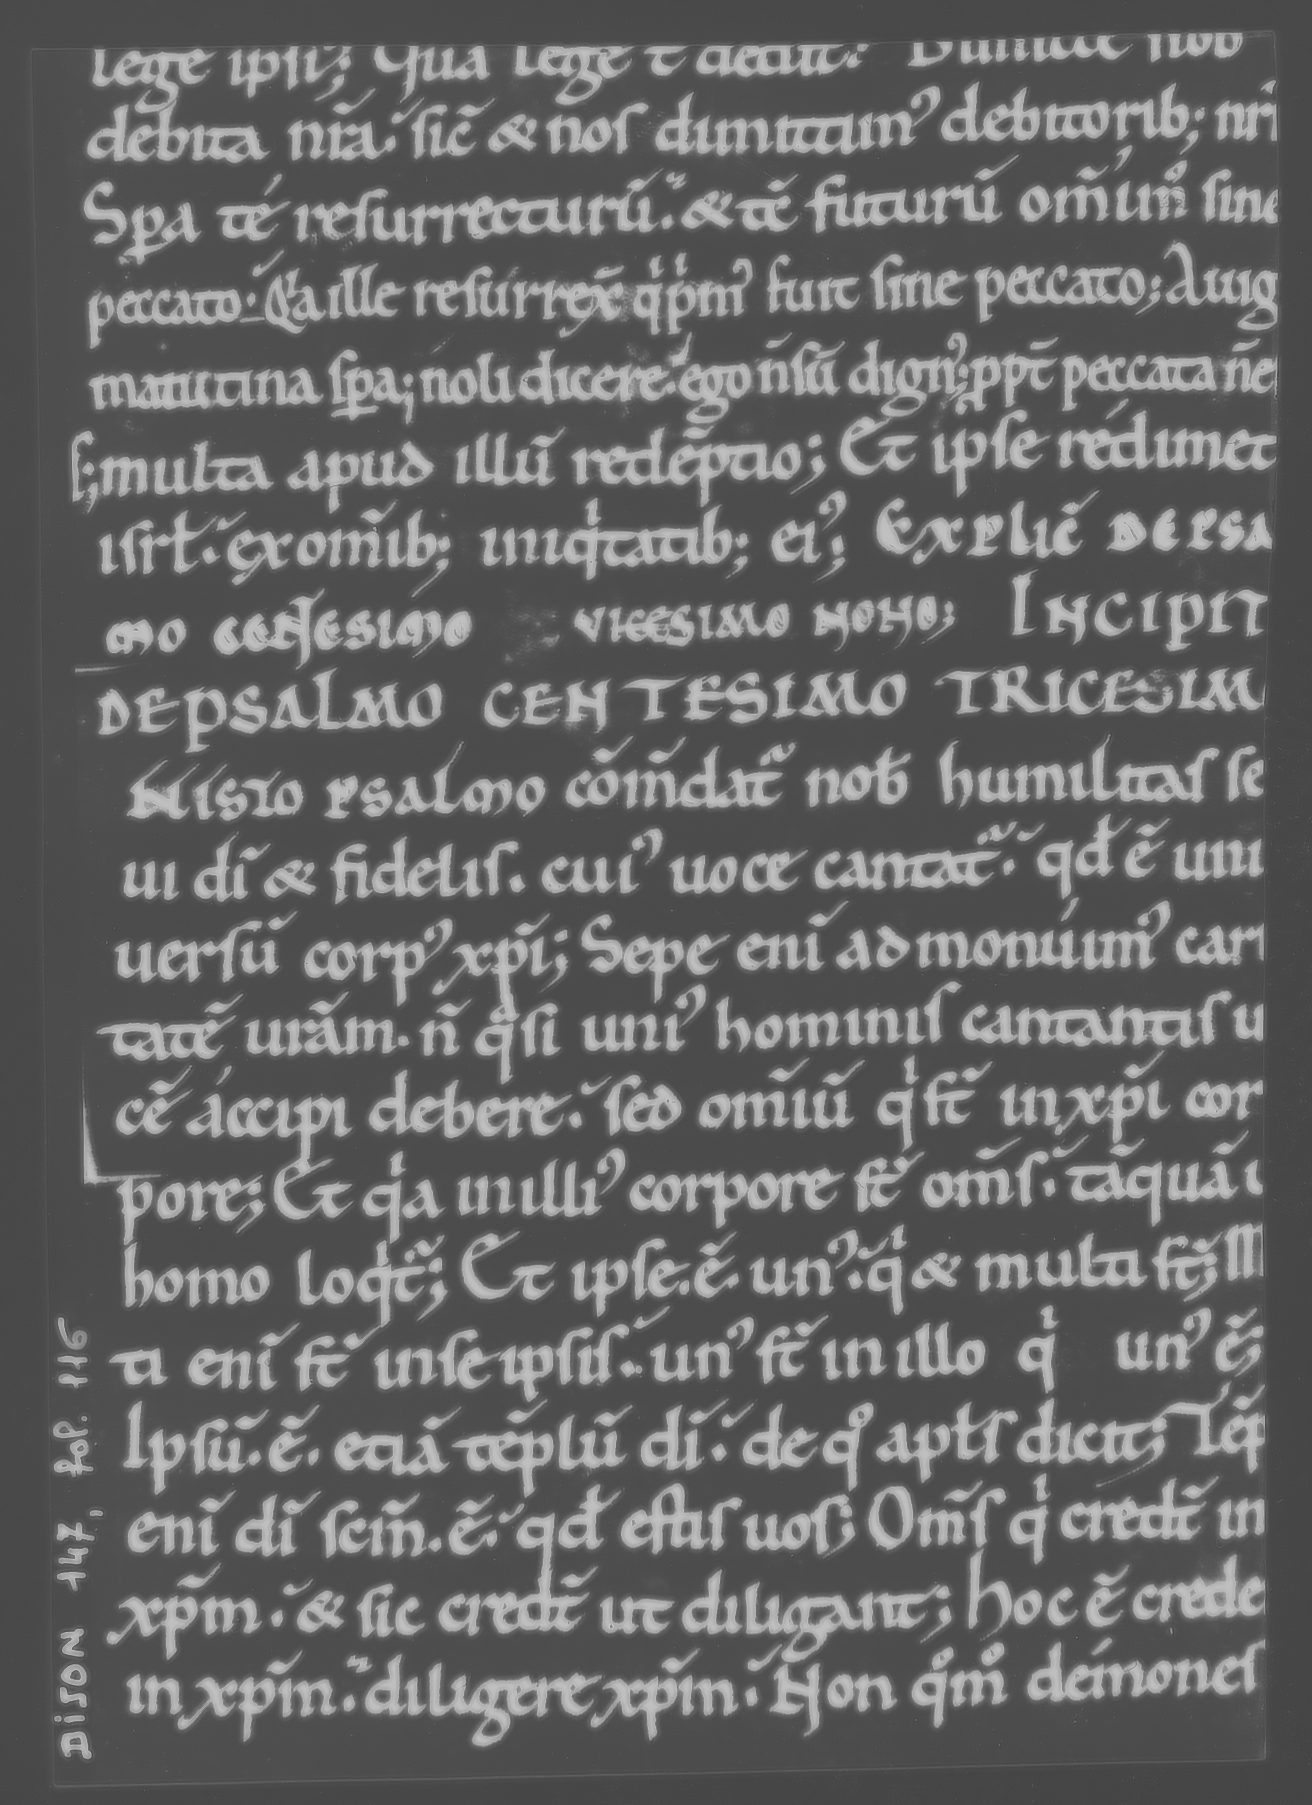 lege ipsi'; Qua lege t̄ dedit:̃ Dimitte nob
debita nr̄a.̃ sic̄ & nos dimittim᾽ debitorib; nri
Spa té resurrecturū.̃ & tē futurū om̄ium̊ sine
peccato.̃ Qͥa ille resurrex̄ qͥ pͥm᾽ fuit sine peccato; A uig
matutina sp̱a; noli dicere.̃ ego n̄ sū dign᾽; ꝓpt̄ peccata n̄e
s; multa apud illū redēp̄tio; Et ipse redimet
isrł.̃ ex om̄ib; iniqͥtatib; ei᾽; Explic̄ DE PSA
mo centesimo vicesimo nono; INCIPIT
DE PSALMO CENTESIMO TRICESIM
N isto psalmo cōm̄dat̃ nob̄ humilitas se
ui dī & fidelis. cui᾽ uoce cantat̃.̃ qđ ē uni
uersū corp᾽ xp̄i; Sepe enī admonúim᾽ cari
tatē urām. n̄ qᵃsi uni᾽ hominis cantantis u
cē áccipi debere.̃ sed om̄iū qͥ st̄ in xp̄i cor
pore; Et qͥa in illi᾽ corpore st̄ om̄s.̃ tāquā u
homo loqͥt̃; Et ipse. ē. un᾽.̃ qͥ & multi st̄; M
ti enī st̄ in se ipsis.̃ un᾽ st̄ in illo qͥ un᾽ ē;
Ipsū. ē. etiā tēplū dī.̃ de qͦ aptłs dicit; Tēp
enī dī scm̄. ē.̃ qđ estis uos; Om̄s qͥ credt̄ in
xp̄m.̃ & sic credt̄ ut diligant; hoc ē crede
in xp̄m.̃ diligere xp̄m.̃ Non qͦm̊ démones
DIJON 147, fol. 116